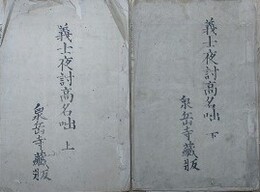 義士夜討高名咄 上
泉岳寺蔵版
義士夜討高名咄 下
泉岳寺蔵版